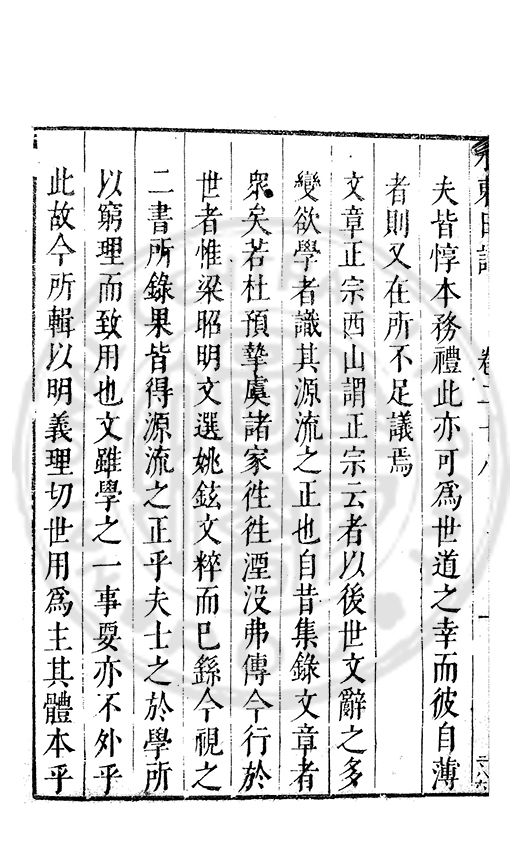 水東日記 卷二十八 一
夫皆惇本務禮此亦可爲世道之幸而彼自薄
者則又在所不足議焉
文章正宗西山謂正宗云者以後世文辭之多
變欲學者識其源流之正也自昔集錄文章者
衆矣若杜預摯虞諸家徃徃湮没弗傳今行於
世者惟梁昭明文選姚鉉文粹而已繇今視之
二書所錄果皆得源流之正乎夫士之於學所
以窮理而致用也文雖學之一事要亦不外乎
此故今所輯以明義理切世用爲主其體本乎